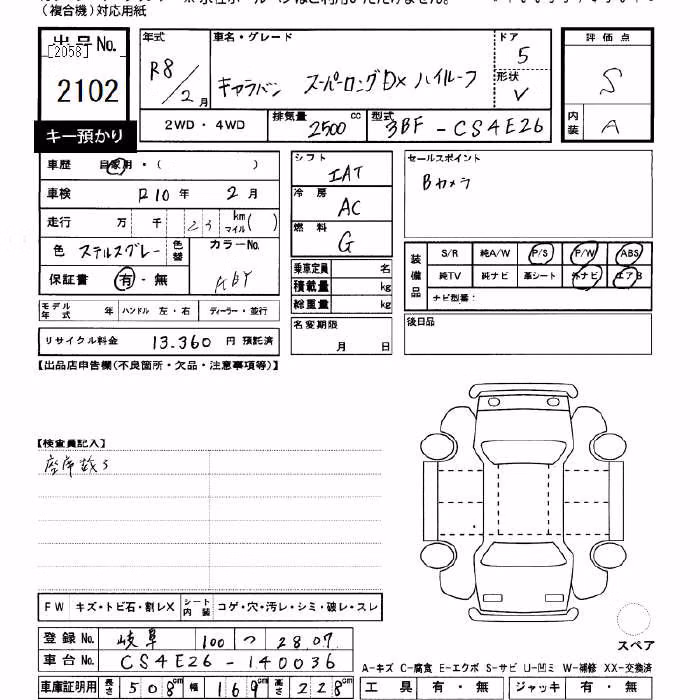 (複合機)対応用紙
出品No.
[2058]
2102
キー預かり
年式 車名・グレード ドア
R8/2月 キャラバン スーパーロングDX ハイルーフ 5
形状
V
2WD・4WD 排気量 2500 cc 型式 3BF-CS4E26
評価点
S
内装 A
車歴 自家用・( )
車検 R10年 2月
走行 万 千 23 km マイル( )
色 ステルスグレー 色替 カラーNo.
保証書 有・無 KBY
モデル年式 年 ハンドル 左・右 ディーラー・並行
リサイクル料金 13.360 円 預託済
シフト IAT
冷房 AC
燃料 G
乗車定員 名
積載量 kg
総重量 kg
名変期限
月 日
セールスポイント
Bカメラ
装備品 S/R 純A/W P/S P/W ABS
純TV 純ナビ 革シート 外ナビ エアB
ナビ型番:
後日品
【出品店申告欄(不良箇所・欠品・注意事項等)】
【検査員記入】
座席数5
FW キズ・トビ石・割レX シート内装 コゲ・穴・汚レ・シミ・破レ・スレ
登録No. 岐阜 100 つ 28.07
車台No. CS4E26-140036
車庫証明用 長さ 508cm 幅 169cm 高さ 228cm
スペア
A-キズ C-腐食 E-エクボ S-サビ U-凹ミ W-補修 XX-交換済
工具 有・無 ジャッキ 有・無